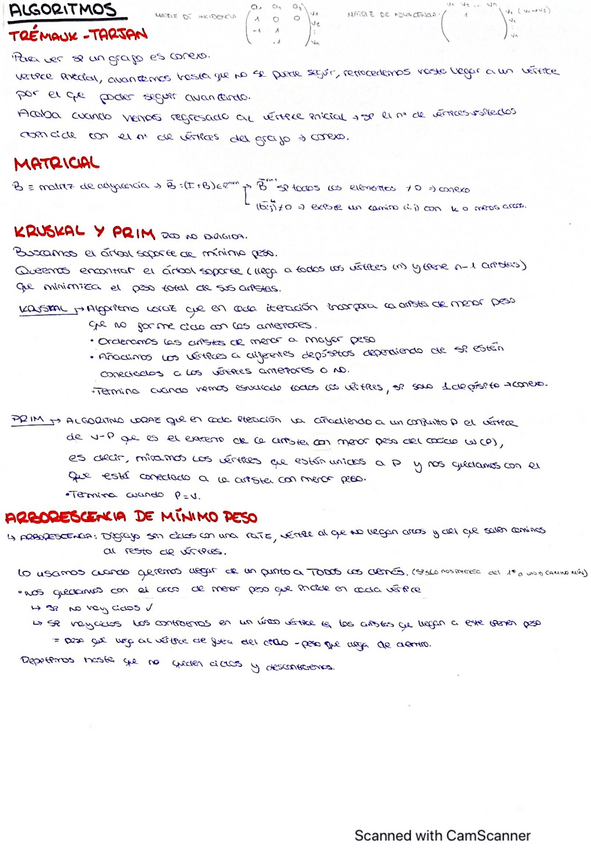 ALGORITMOS
MATRIZ DE INCIDENCIA
MATRIZ DE ADYACENCIA
TRÉMAUX-TARJAN
Para ver si un grafo es conexo.
vértice inicial, avanzamos hasta que no se puede seguir, retrocedemos hasta llegar a un vértice
por el que poder seguir avanzando.
Acaba cuando hemos regresado al vértice inicial → si el nº de vértices visitados
coincide con el nº de vértices del grafo → conexo.
MATRICIAL
B = matriz de adyacencia → B̄ = (I+B) si todos los elementos ≠ 0 → conexo
≠0 → existe un camino (i,j) con k o menos arcos.
KRUSKAL Y PRIM RED NO DIRIGIDA.
Buscamos el árbol soporte de mínimo peso.
Queremos encontrar el árbol soporte (llega a todos los vértices (n) y tiene n-1 aristas)
que minimiza el peso total de sus aristas.
KRUSKAL → Algoritmo voraz que en cada iteración incorpora la arista de menor peso
que no forme ciclo con las anteriores.
• Ordenamos las aristas de menor a mayor peso
• Añadimos los vértices a diferentes depósitos dependiendo de si están
conectados a los vértices anteriores o no.
• Termina cuando hemos estudiado todos los vértices, si solo 1 depósito → conexo.
PRIM → ALGORITMO VORAZ que en cada iteración va añadiendo a un conjunto P el vértice
de V-P que es el extremo de la arista con menor peso del cociclo ω(P),
es decir, miramos los vértices que están unidos a P y nos quedamos con el
que está conectado a la arista con menor peso.
• Termina cuando P=V.
ARBORESCENCIA DE MÍNIMO PESO
↳ ARBORESCENCIA: Digrafo sin ciclos con una raíz, vértice al que no llegan arcos y del que salen caminos
al resto de vértices.
Lo usamos cuando queremos llegar de un punto a TODOS los demás.
• nos quedamos con el arco de menor peso que incide en cada vértice
↳ si no hay ciclos ✓
↳ si hay ciclos los contraemos en un único vértice las aristas que llegan a este tienen peso
= peso que llega al vértice de fuera del ciclo - peso que llega de dentro.
Repetimos hasta que no queden ciclos y descontraemos.
Scanned with CamScanner